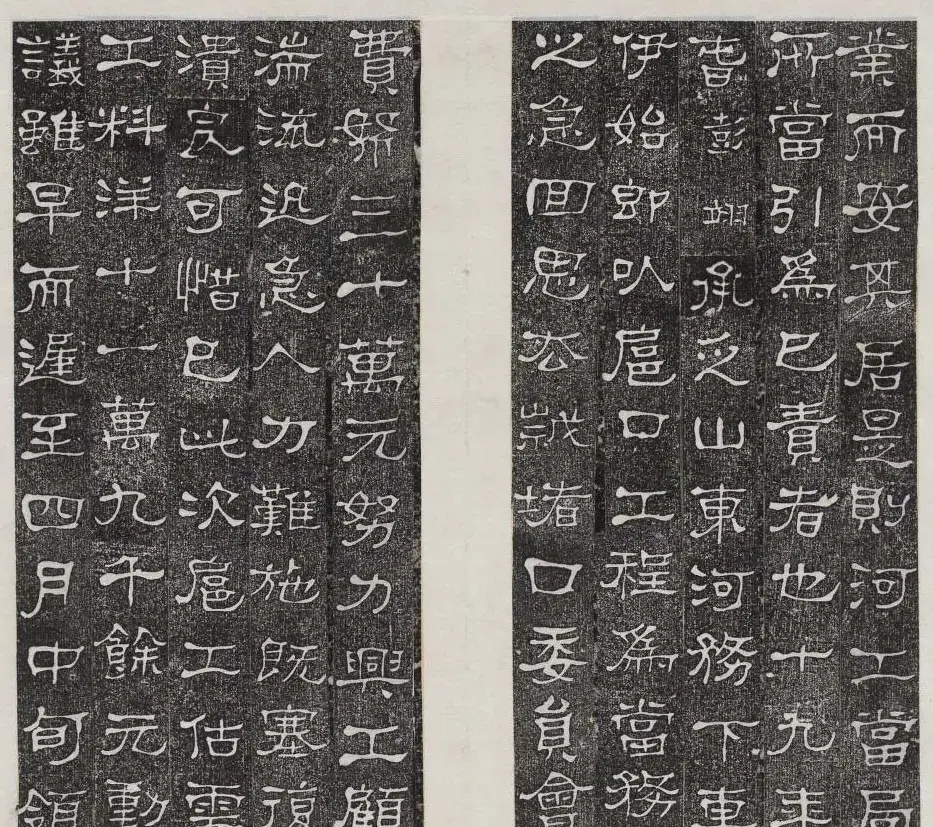 業而安其居是則河工當局
所當引為己責者也十九年
耆彭翊承乏山東河務下車
伊始即以扈口工程為當務
之急回思宏裁堵口委員會
費努三十萬元努力興工顧
湍流迅急人力難施既塞復
潰良可惜已此次扈工估需
工料洋十一萬九千餘元動
議雖早而遲至四月中旬領